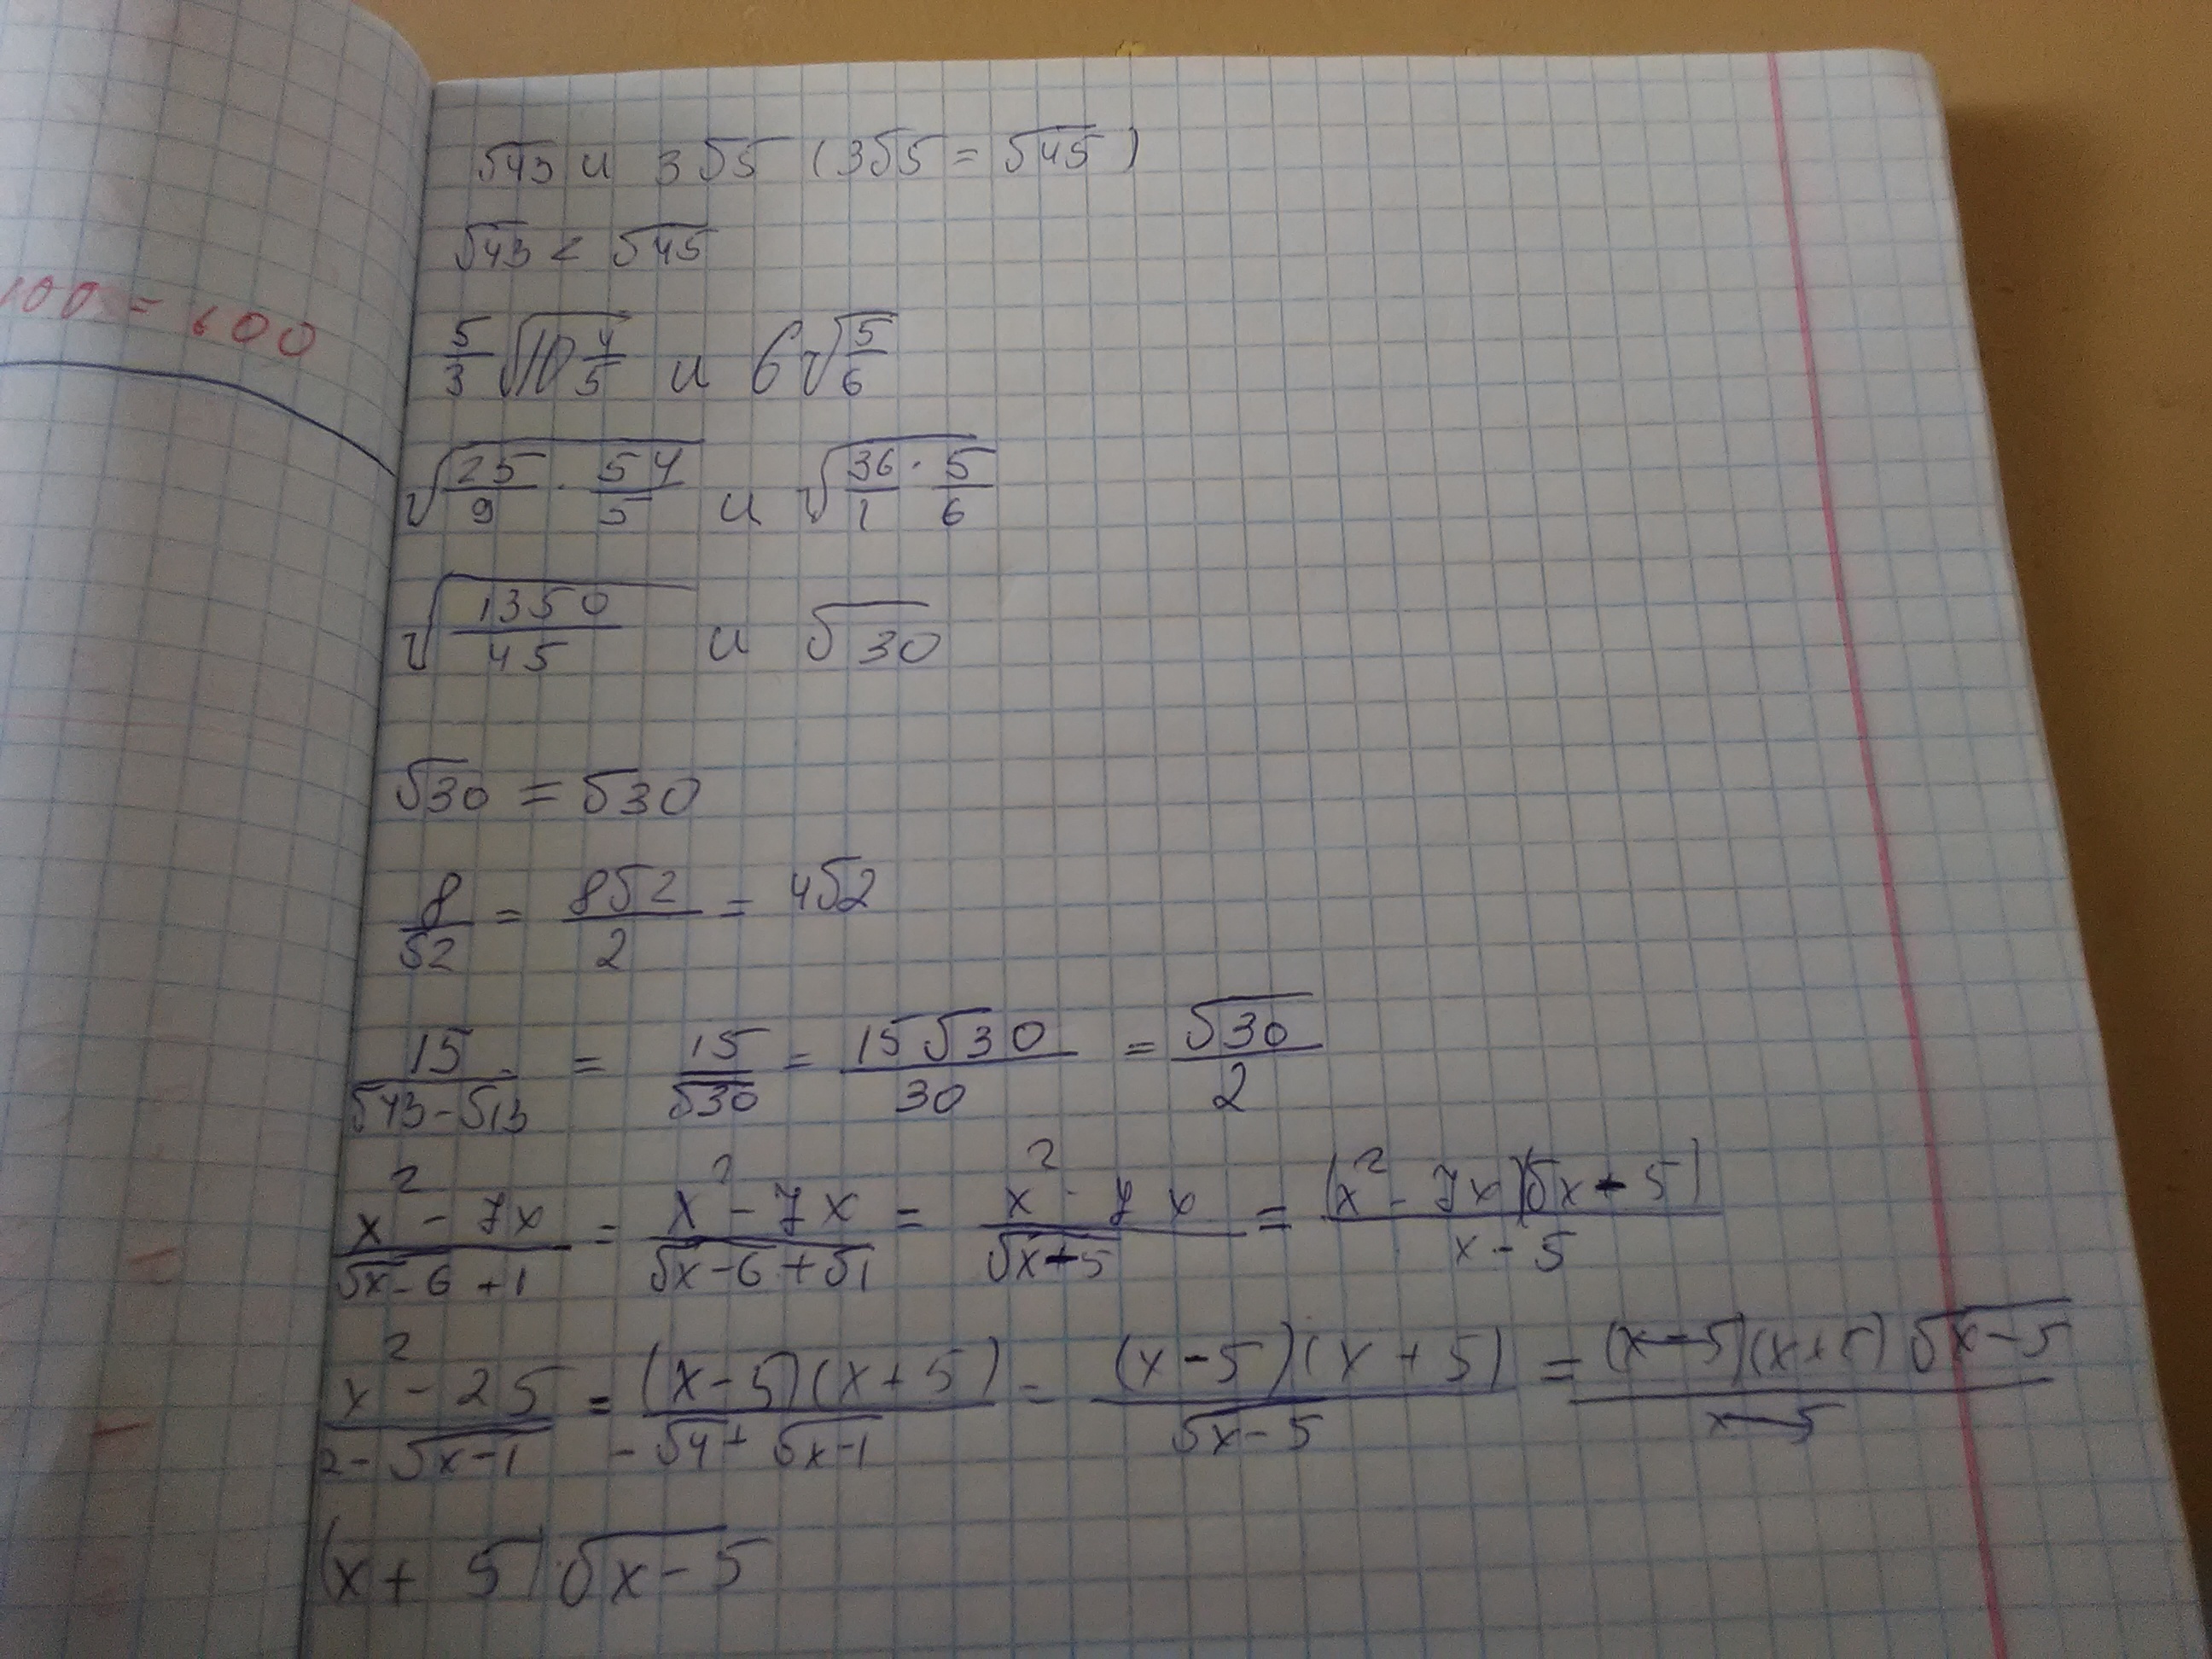 100 = 600
√43 и 3√5 (3√5 = √45)
√43 < √45
5/3 √(10 4/5) и 6√(5/6)
√(25/9 · 54/5) и √(36/1 · 5/6)
√(1350/45) и √30
√30 = √30
8/√2 = 8√2/2 = 4√2
15/(√43-√13) = 15/√30 = 15√30/30 = √30/2
(x²-7x)/(√(x-6)+1) = (x²-7x)/(√(x-6)+√1) = (x²-7x)/√(x-5) = (x²-7x)(√x-5)/(x-5)
(x²-25)/(2-√(x-1)) = (x-5)(x+5)/(-√4+√(x-1)) = (x-5)(x+5)/√(x-5) = (x-5)(x+5)√(x-5)/(x-5)
(x+5)·√(x-5)